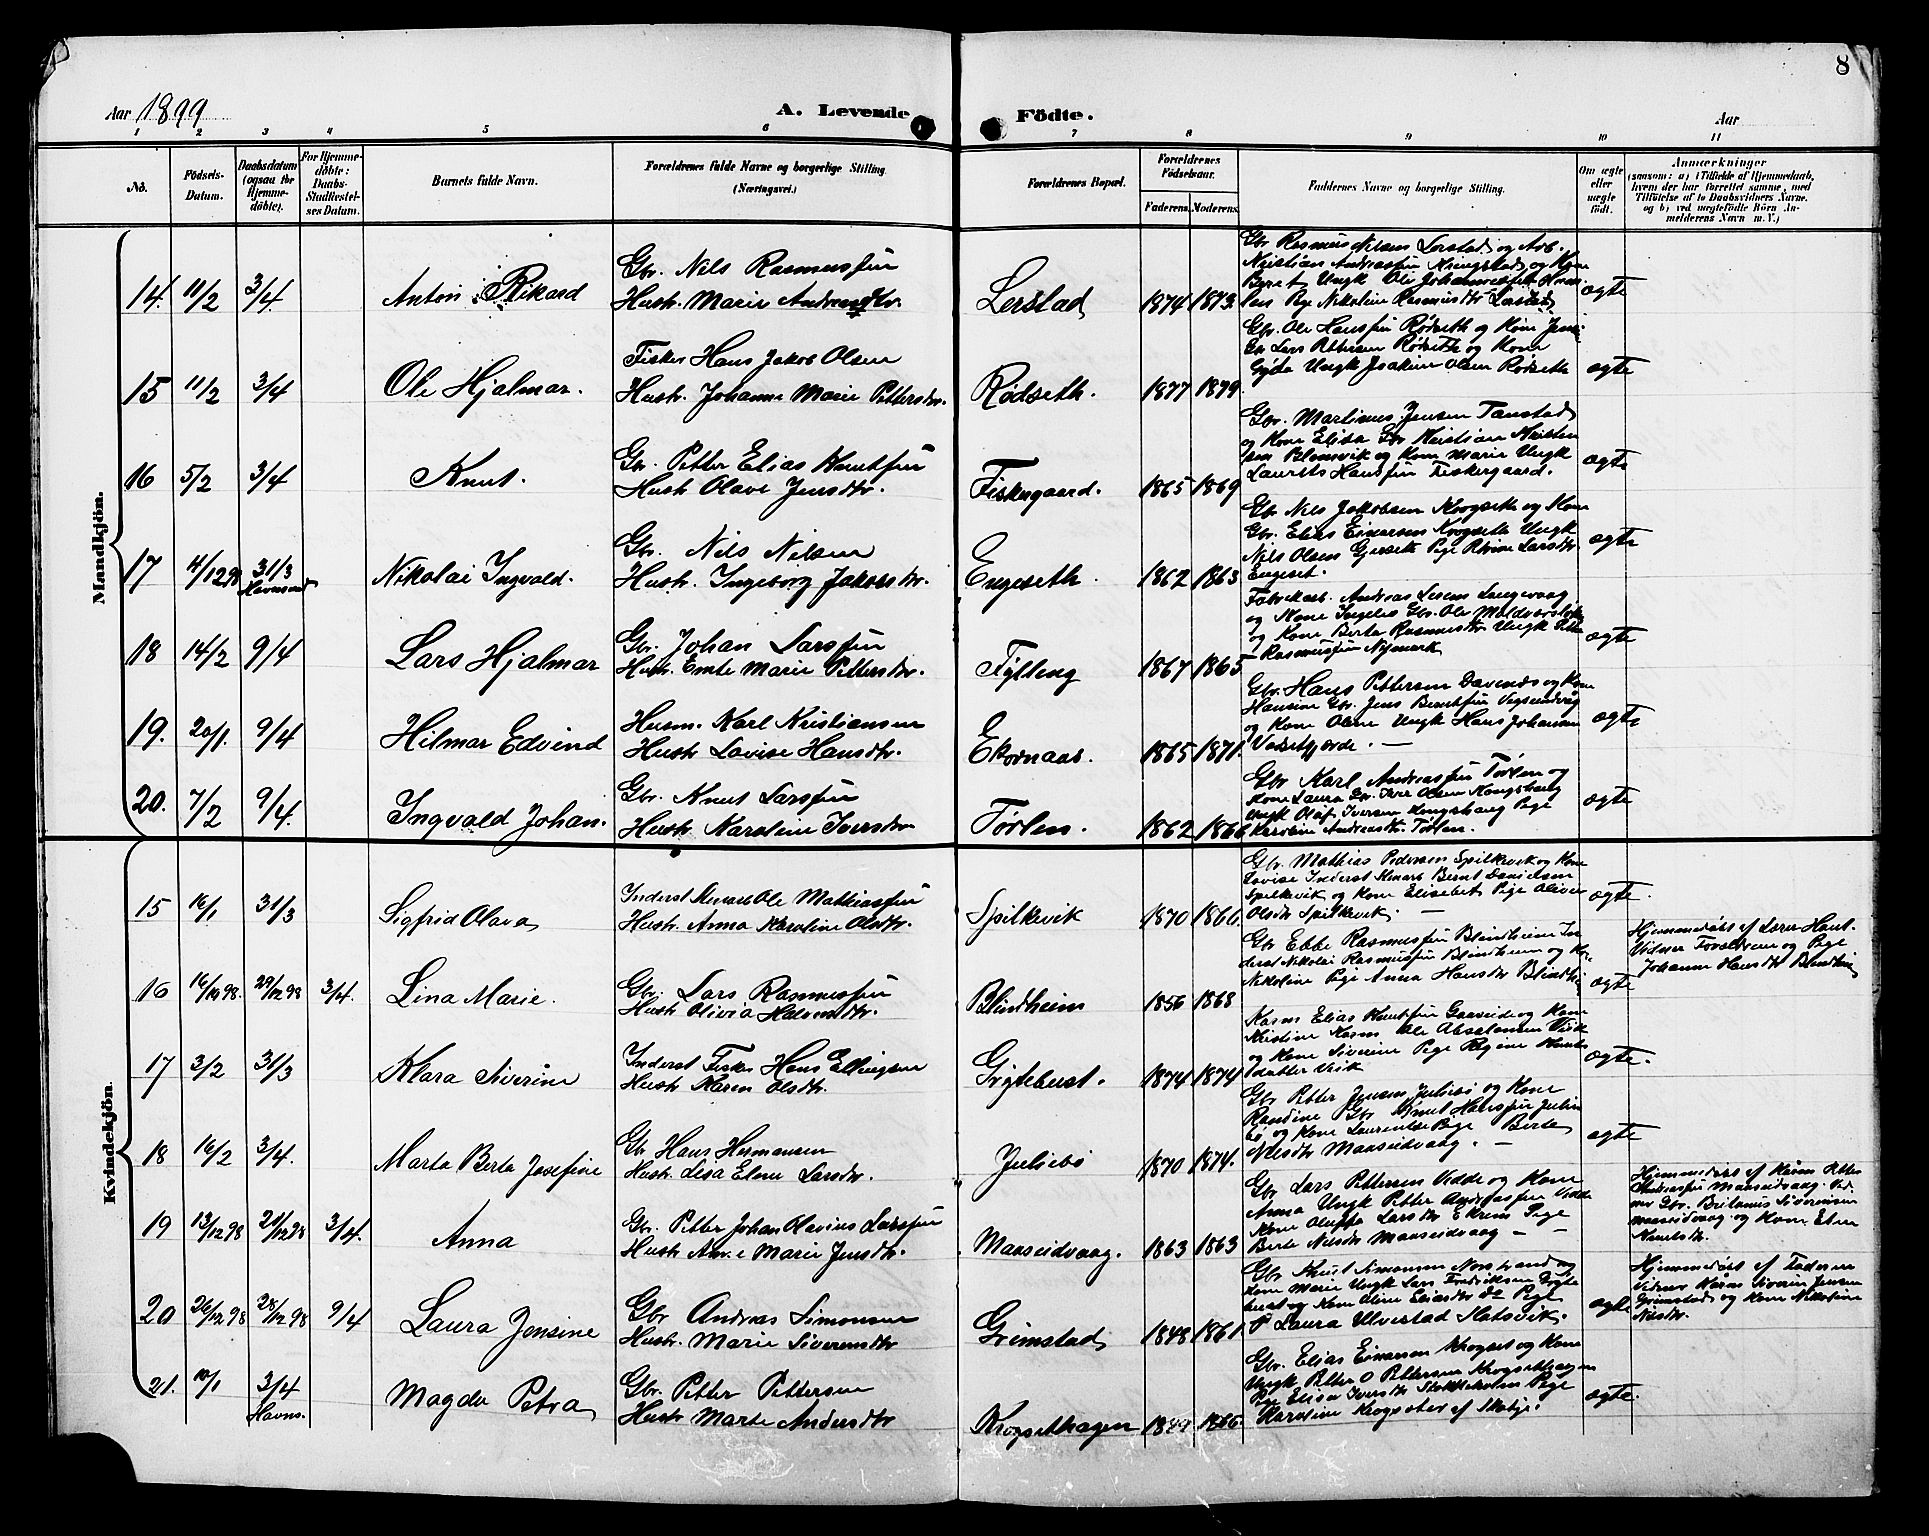 8
Aar 1899
A. Levende Födte.
Aar
1 2 3 4 5 6 7 8 9 10 11
No.
Födsels-Datum.
Daabsdatum (ogsaa for Hjemme-döbte).
For Hjemme-döbte: Daabs-Stadfæstel-ses Datum.
Barnets fulde Navn.
Forældrenes fulde Navne og borgerlige Stilling. (Næringsvei.)
Forældrenes Bopæl.
Forældrenes Födselsaar.
Faderens. Moderens.
Faddernes Navne og borgerlige Stilling.
Om ægte eller uægte födt.
Anmærkninger
(saasom: a) i Tilfælde af Hjemmedaab,
hvem der har forrettet samme, med
Tilföielse af to Daabsvidners Navne.
og b) ved uægtefödte Börn An-
melderens Navn m. V.)
Mandkjön.
14. 11/2 3/4 Anton Rikard
Gbr. Nils Rasmussen
Hustr. Marie Andreasdtr.
Lerstad 1874 1873.
Gbr Rasmus Nilsen Lerstad og Arb.
Kristian Andreassen og Kone
Beret Ungk Ole Johannessen
Pige Nikoline Rasmusdtr Lerstad
ægte
15 11/2 3/4 Ole Hjalmar.
Fisker Hans Jakob Olsen
Hustr. Johanne Marie Pettersdtr.
Rødseth. 1877 1879.
Gbr. Ole Hanssen Rødseth og Kone
Gbr Lars Pettersen Rødseth og Kone
Gyda Ungk Joakim Olsen Rødseth
ægte
16 5/2 3/4 Knut.
Gbr. Petter Elias Knutsen
Hustr Olave Jensdtr.
Fiskergaard. 1865 1869
Gbr. Martinus Jensen Tanstad
og Kone Elisa Gbr Kristian Kristen
sen Blomvik og Kone Marie Ungk
Laurits Hanssen Fiskergaard.
ægte
17 14/12 98 31/3 Havnsund Nikolai Ingvald.
Gbr. Nils Nilsen
Hustr. Ingeborg Jakobsdtr.
Engeseth. 1862 1863
Gbr Nils Jakobsen Krogseth og Kone
Gbr. Elias Einarsen Krogseth Ungk
Nils Olsen Gjerseth Pige Larsdtr
Engeset.
ægte
18 14/2 9/4 Lars Hjalmar
Gbr. Johan Larssen
Hustr. Emte Marie Pettersdtr.
Fylling 1867 1865
Fabrikarb. Andreas Larsen Langevaag
og Kone Gbr. Ole
og Kone Berta Rasmusdtr Ungk
Rasmussen Nymark
ægte
19. 20/1. 9/4 Hilmar Edvind
Husm. Karl Kristiansen
Hustr Lovise Hansdtr.
Ekornaas. 1865 1871.
Gbr. Hans Pettersen og Kone
Hansine Gbr. Jens Berntsen
og Kone Oline Ungk Hans Johansen
ægte
20. 7/2 9/4. Ingvald Johan.
Gbr. Knut Larssen
Hustr Karoline Iversdtr
Tørlen. 1862 1866
Gbr Karl Andreassen Tørlen og
Kone Laura Gbr. Iver Olsen Kongshaug
Ungk Olaf Iversen Kongshaug Pige
Karoline Andreasdtr. Tørlen.
ægte
Kvindekjön.
15 16/1 31/3 Sigfrid Olava
Inderst Ole Mathiassen
Hustr. Anna Karoline Olsdtr.
Spilkevik 1870 1866.
Gbr. Mathias Pedersen Spilkevik og Kone
Lovise Inderst Bernt Danielsen
Spilkevik og Kone Elisebet Pige Oliver
Olsdtr Spilkevik.
ægte.
16 16/12 98. 29/12 98 3/4. Lina Marie.
Gbr. Lars Rasmussen
Hustr Olivia
Blindheim 1856 1868
Gbr Ebbe Rasmussen Blindheim In
derst Nikolai Rasmussen Blindheim og
Nikoline Pige Anna Hansdtr
ægte
Hjemmedøbt af Lærer
Vidner Forældrene og Pige
Johanne Hansdtr
17 3/2 31/3 Klara Siverine
Inderst Fisker Hans Ellingsen
Hustr Karen Olsdtr.
Grytebust. 1874 1874
Elias Knutsen og Kone
Kristine Ole Absalonsen Vik
og Kone Siverine Pige Regine Knuts
datter Vik
ægte.
18 16/2 3/4. Marta Berta Josefine
Gbr Hans Hermansen
Hustr. Lisa Eline Larsdtr.
Julsebø 1870 1874.
Gbr Petter Jensen Julsebø og Kone
Randine Gbr Knut Hanssen
bø og Kone Pige Berta
Nilsdtr Manseidvaag. —
ægte
19 13/12 98 21/12 98 3/4. Anna
Gbr. Petter Johan Olavius Larssen
Hustr Ane Marie Jensdtr.
Manseidvaag. 1863 1863
Gbr Lars Pettersen Vidde og Kone
Anna Ungk Petter Andreassen Vidde
Kone Oluffa Larsdtr Ekrem Pige
Berte Nilsdtr Manseidvaag — —
ægte
Hjemmedøbt af Petter
Andreassen Manseidvaag. Vid
ner Gbr. Britanus Siverinsen
Manseidvaag og Kone Eline
Knutsdtr.
20 26/12 98 28/12 98 9/4 Laura Jensine
Gbr Andreas Simonsen
Hustr. Marie Siverinsdtr
Grimstad 1848 1861.
Gbr Knut Simonsen Norstrand og
Kone Marie Ungk Lars Fredriksen
og Kone Oline Eliasdtr do Pige
P Laura Ulvestad Slatsvik.
ægte
Hjemmedøbt af Faderen
Vidner Siverin Jensen
Grimstad og Kone Nikoline
Nilsdtr.
21. 10/1 3/4 Havns. Magda Petra
Gbr. Petter Pettersen
Hustr Marte Andersdtr
Krogsethagen 1849 1866.
Gbr. Elias Einarsen Krogset og Kone
Ungk Petter O Pettersen Krogsethagen
Pige Elisa Iversdtr Pige
Karoline Krogsæter af Skodje.
ægte.